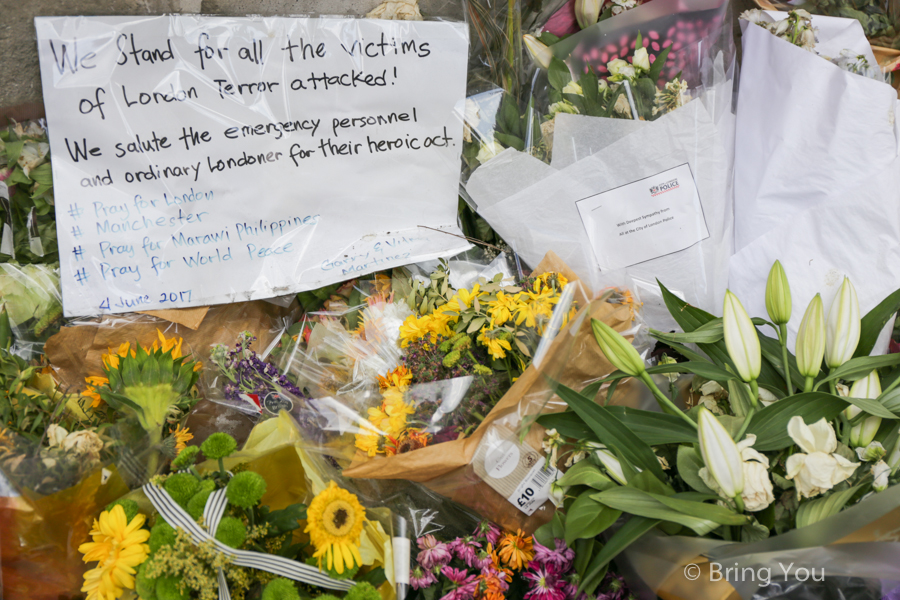 We Stand for all the victims
of London Terror attacked!
We salute the emergency personnel
and ordinary Londoner for their heroic act.
# Pray for London
# Manchester
# Pray for Marawi Philippines
# Pray for World Peace
Martinez
4 June 2017
POLICE
With Deepest Sympathy from
all at the City of London Police
£10
© Bring You